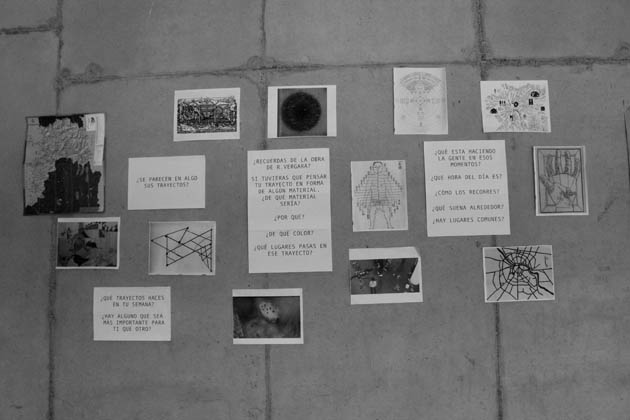 ¿SE PARECEN EN ALGO
SUS TRAYECTOS?
¿QUÉ TRAYECTOS HACES
EN TU SEMANA?
¿HAY ALGUNO QUE SEA
MÁS IMPORTANTE PARA
TI QUE OTRO?
¿RECUERDAS DE LA OBRA
DE R.VERGARA?
SI TUVIERAS QUE PENSAR
TU TRAYECTO EN FORMA
DE ALGÚN MATIRIAL.
¿DE QUE MATERIAL
SERÍA?
¿POR QUÉ?
¿DE QUÉ COLOR?
¿QUÉ LUGARES PASAS EN
ESE TRAYECTO?
¿QUÉ ESTA HACIENDO
LA GENTE EN ESOS
MOMENTOS?
¿QUE HORA DEL DÍA ES?
¿CÓMO LOS RECORRES?
¿QUÉ SUENA ALREDEDOR?
¿HAY LUGARES COMUNES?